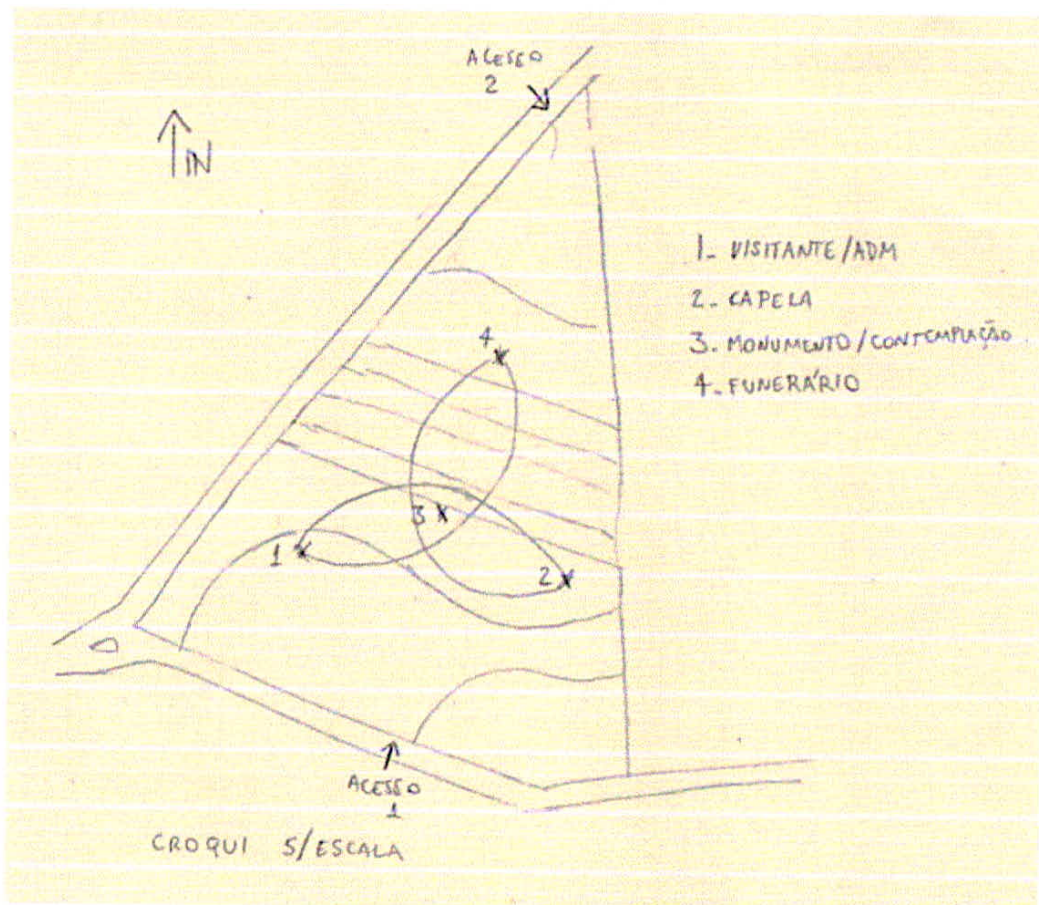 ACESSO
2
N
1_ VISITANTE/ADM
2_ CAPELA
3_ MONUMENTO/CONTEMPLAÇÃO
4_ FUNERÁRIO
4
3
1
2
ACESSO
1
CROQUI S/ESCALA